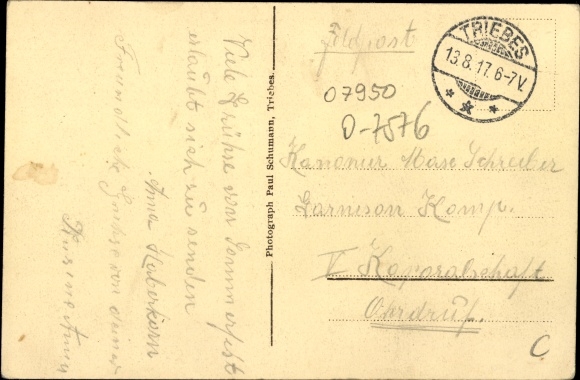 Viele Grühse vom Sommerfest
erlaubt sich zu senden
Anna Haberkorn
Freundliche Grühse von deiner
Kusine Anna
Photograph Paul Schumann, Triebes.
Feldpost
TRIEBES
13.8.17.6-7V.
07950
O-7576
Kanonier Max Schreiber
Garnison Komp.
V. Koporalschaft
Ohrdruf.
C